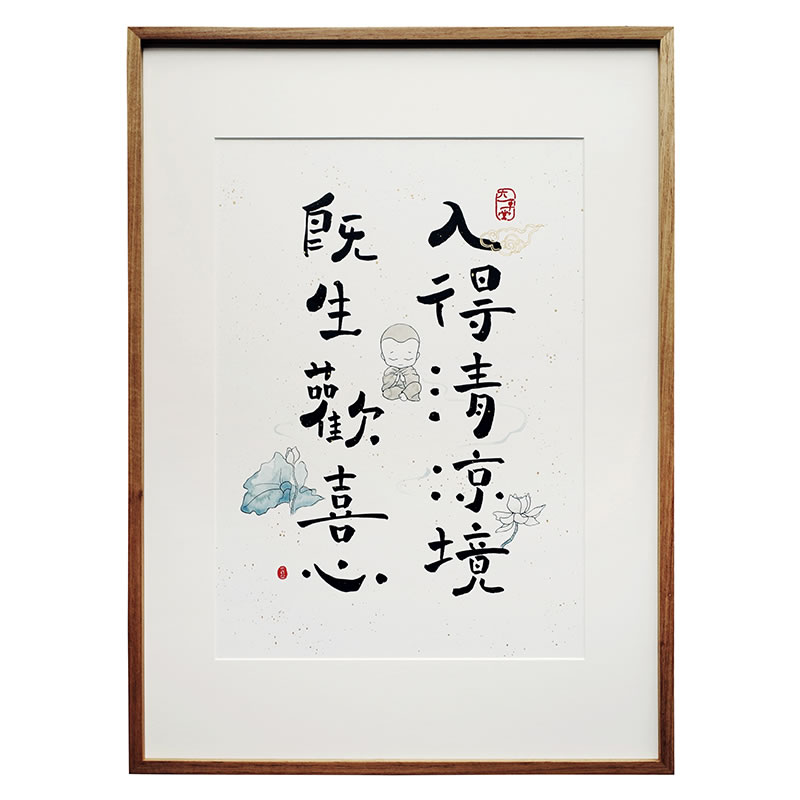 入得清涼境
既生歡喜心